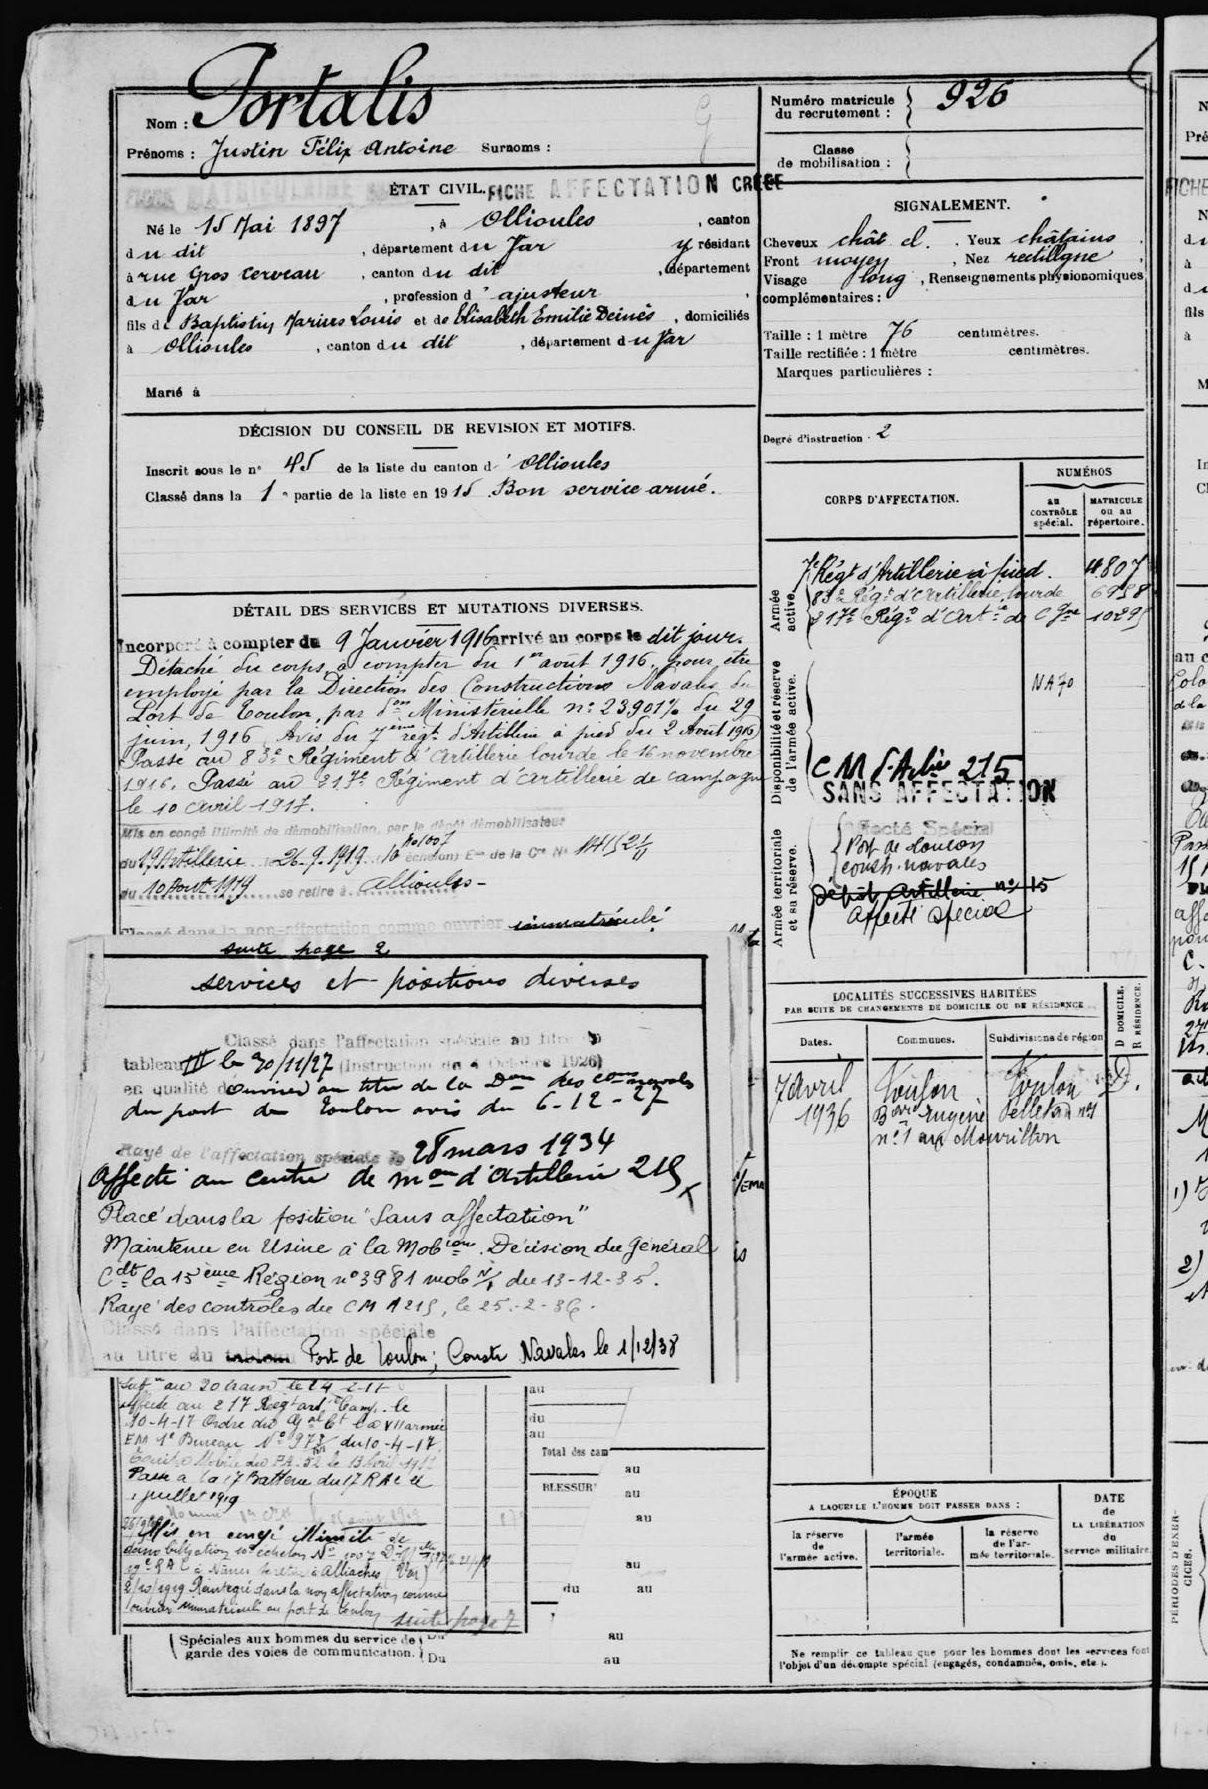 Nom : Portalis
Prénoms : Justin Félix Antoine Surnoms :
Numéro matricule du recrutement : 926
Classe de mobilisation :
ÉTAT CIVIL. FICHE AFFECTATION CRÉÉE
Né le 15 Mai 1897, à Ollioules, canton
du dit, département du Var, y résidant
à rue Gros Cerveau, canton du dit, département
du Var, profession d'ajusteur
fils de Baptistin Marius Louis et de Elisabeth Emilie Deinès, domiciliés
à Ollioules, canton du dit, département du Var
Marié à
SIGNALEMENT.
Cheveux chât cl. Yeux châtains
Front moyen, Nez rectiligne
Visage long, Renseignements physionomiques
complémentaires :
Taille : 1 mètre 76 centimètres.
Taille rectifiée : 1 mètre centimètres.
Marques particulières :
Degré d'instruction 2
DÉCISION DU CONSEIL DE REVISION ET MOTIFS.
Inscrit sous le n° 45 de la liste du canton d'Ollioules
Classé dans la 1e partie de la liste en 1915. Bon service armé.
DÉTAIL DES SERVICES ET MUTATIONS DIVERSES.
Incorporé à compter du 9 Janvier 1916 arrivé au corps le dit jour.
Détaché du corps à compter du 1er août 1916, pour être
employé par la Direction des Constructions Navales du
Port de Toulon, par don Ministérielle n° 23901 % du 29
juin 1916. Avis du 7ème régt d'Artillerie à pied du 2 Août 1916
Passé au 83e Régiment d'Artillerie lourde le 16 novembre
1916. Passé au 217e Régiment d'artillerie de campagne
le 10 avril 1917.
Mis en congé illimité de démobilisation, par le dépôt démobilisateur
du 19 Artillerie le 26.9.1919. 10 échelon;
du 10 Aout 1919 se retire à Ollioules
Classé dans la non-affectation comme ouvrier immatriculé
suite page 2
services et positions diverses
Classé dans l'affectation spéciale au titre du
tableau III le 30/11/27 (Instruction du 4 Octobre 1926)
en qualité d'ouvrier au titre de la Don des Cons navales
du port de Toulon avis du 6-12-27
Rayé de l'affectation spéciale le 28 mars 1934
Affecté au centre de mon d'Artillerie 215
Placé dans la position "Sans affectation"
Maintenu en Usine à la Mobion. Décision du Général
Cdt la 15ème Région n° 3981 mob du 13-12-35.
Rayé des controles du CMA 215, le 25-2-36.
Classé dans l'affectation spéciale
au titre du tableau Port de Toulon; Constr Navales le 1/12/38
au 20 train le 24-2-17
affecté au 217 Regt art. Camp. le
10-4-17 Ordre du Gal Ct la VII armée
EM 1e Bureau N° 973 du 10-4-17.
Passé à la 17 Batterie du 17 RAC le
1 juillet 1919
Mis en congé illimité de
démobilisation 10e échelon
2/10/1919 Réintégré dans la non affectation comme
ouvrier immatriculé au port de Toulon suite page 2
Total des cam
BLESSUR
Spéciales aux hommes du service de
garde des voies de communication.
Du au
CORPS D'AFFECTATION.
NUMÉROS
au CONTRÔLE spécial.
MATRICULE ou au répertoire.
Armée active.
7e Régt d'Artillerie à pied. 4807
83e Régt d'Artillerie lourde 6958
217e Régt d'Artie de Cgne 10295
Disponibilité et réserve de l'armée active.
NA 70
C M d'Artie 215
SANS AFFECTATION
Armée territoriale et sa réserve.
Affecté Spécial
Port de Toulon
const. navales
Dépôt Artillerie n° 15
Affecté spécial
LOCALITÉS SUCCESSIVES HABITÉES
PAR SUITE DE CHANGEMENTS DE DOMICILE OU DE RÉSIDENCE
D DOMICILE. R RÉSIDENCE.
Dates. Communes. Subdivisions de région
7 Avril Toulon Toulon D.
1936 Bard Eugène Pelletan n°1
n° 1 au Mourillon
ÉPOQUE
A LAQUELLE L'HOMME DOIT PASSER DANS :
la réserve de l'armée active.
l'armée territoriale.
la réserve de l'armée territoriale.
DATE de LA LIBÉRATION du service militaire.
Ne remplir ce tableau que pour les hommes dont les services font
l'objet d'un décompte spécial (engagés, condamnés, omis, etc.).
PÉRIODES D'EXERCICES.